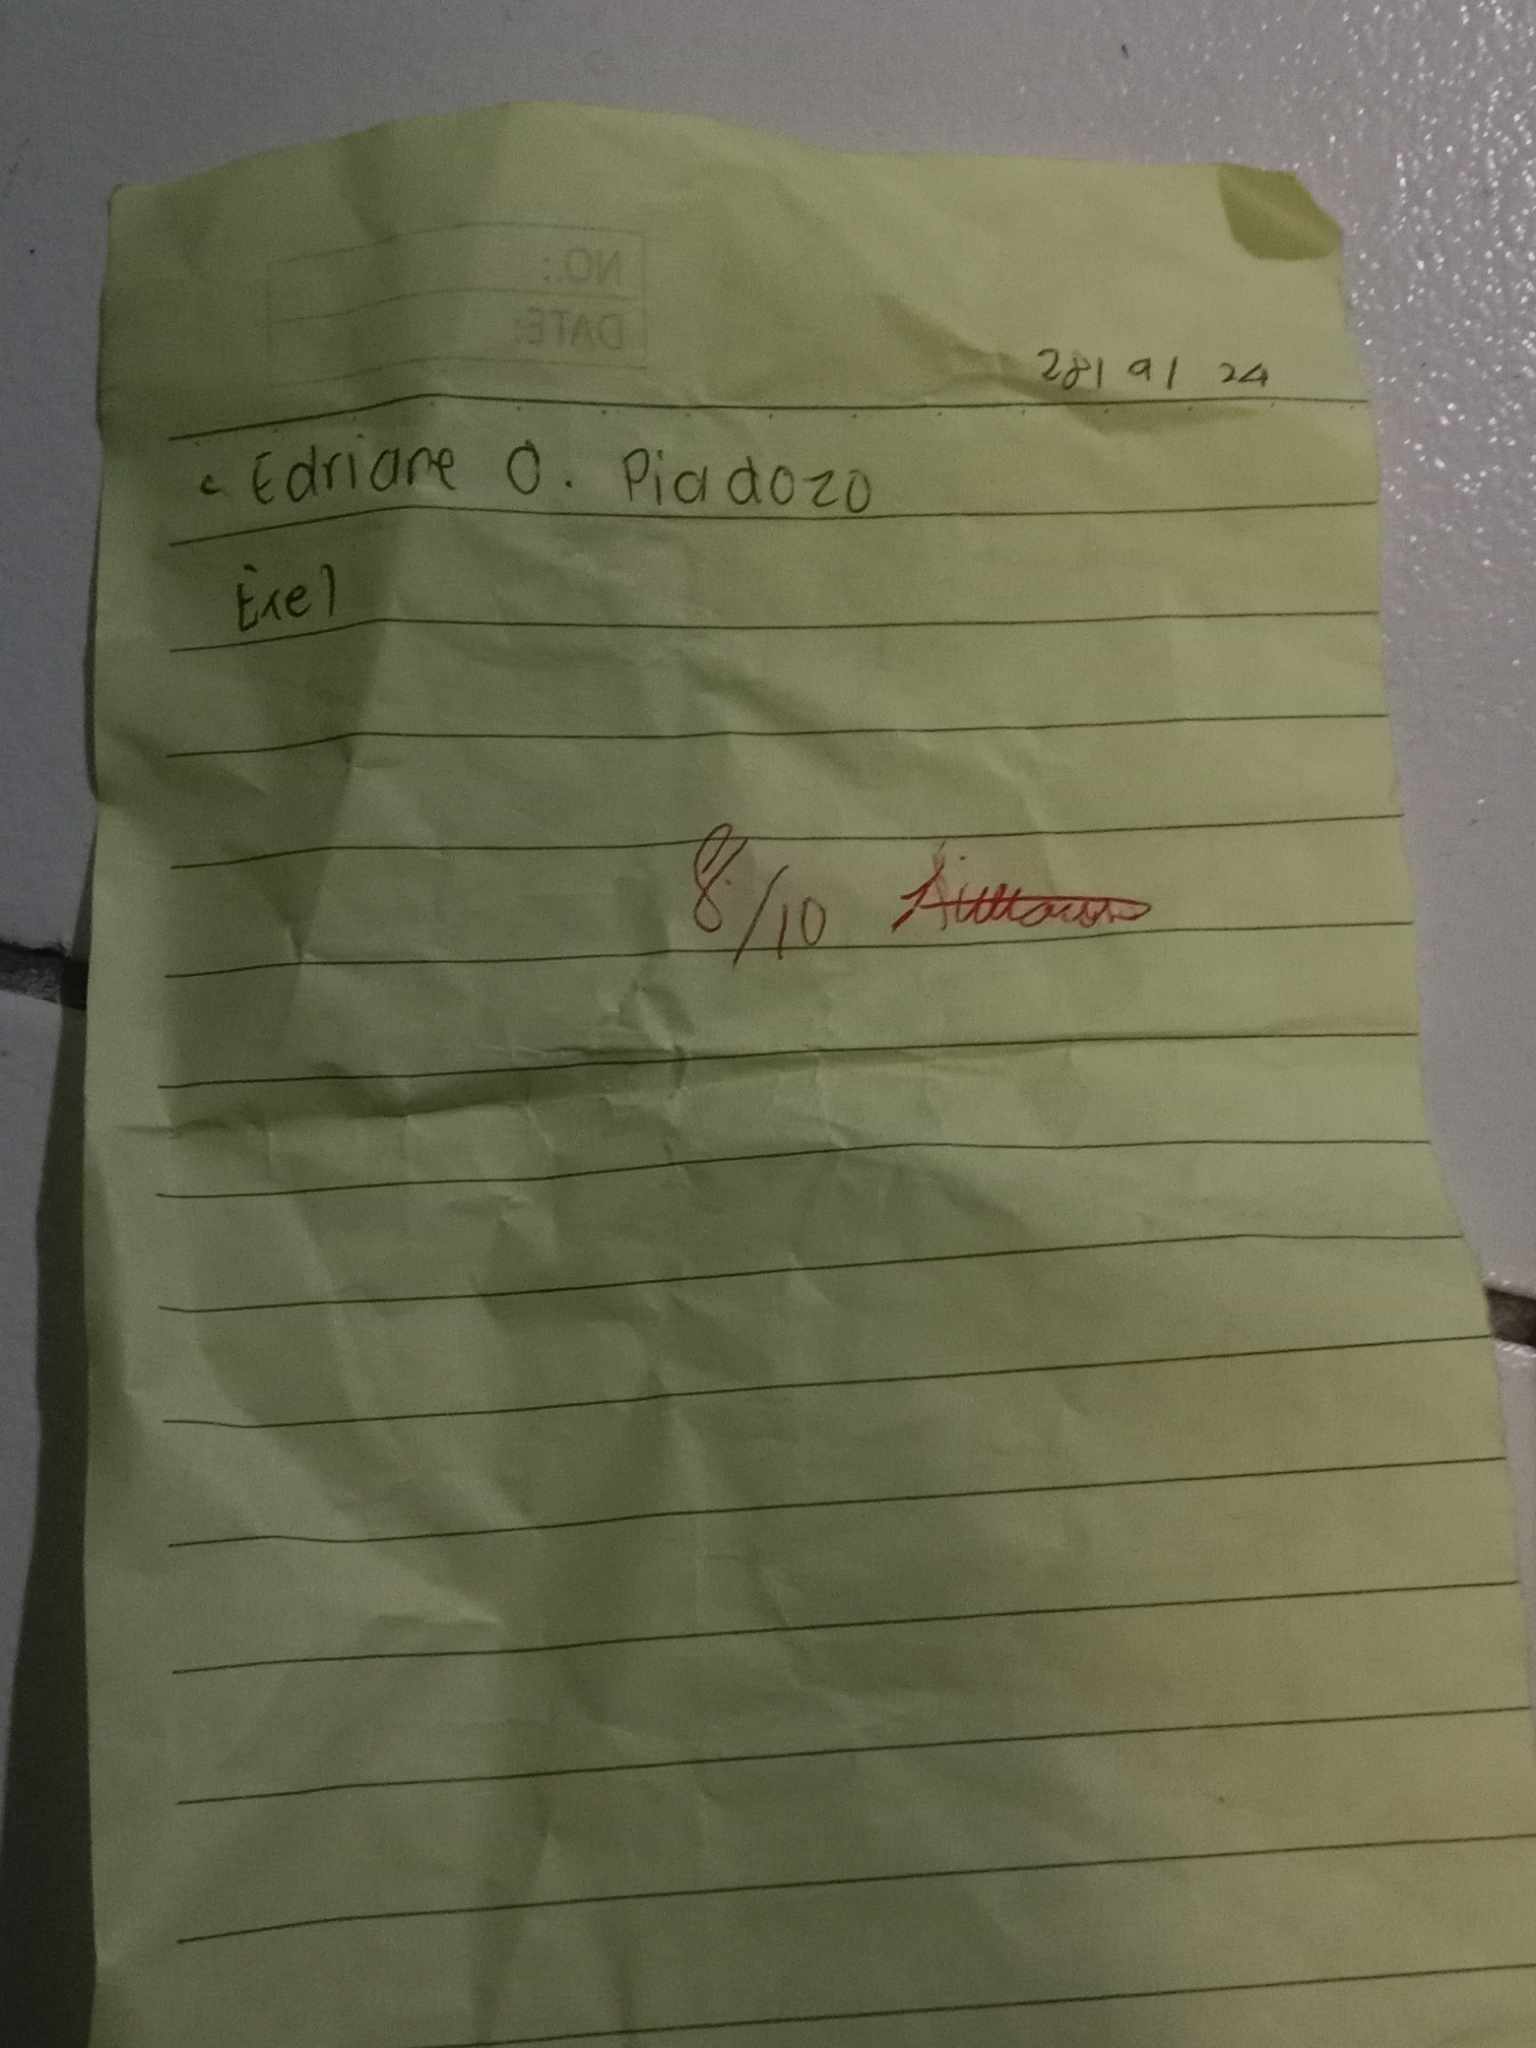 NO.:
DATE:
28/9/24
Edriane O. Piadozo
Exel
8/10